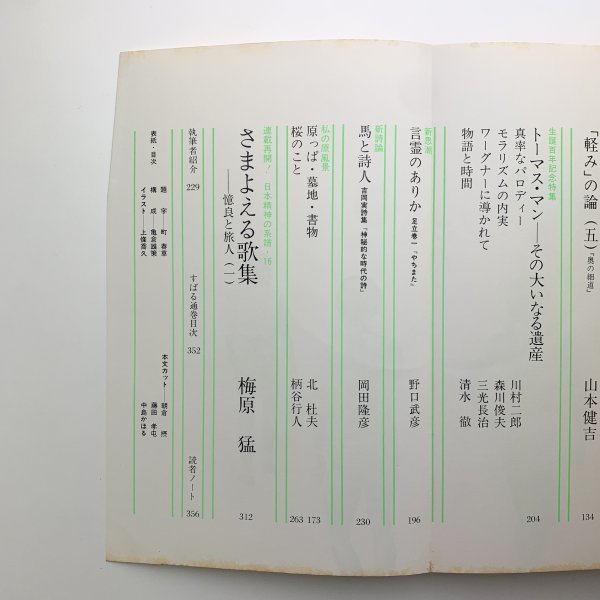 「軽み」の論（五）「奥の細道」
山本健吉
134
生誕百年記念特集
トーマス・マン――その大いなる遺産
真率なパロディー
川村二郎
モラリズムの内実
森川俊夫
ワーグナーに導かれて
三光長治
物語と時間
清水 徹
204
新思潮
言霊のありか 足立巻一『やちまた』
野口武彦
196
新詩論
馬と詩人 吉岡実詩集『神秘的な時代の詩』
岡田隆彦
230
私の原風景
原っぱ・墓地・書物
北 杜夫
173
桜のこと
柄谷行人
263
連載再開！ 日本精神の系譜・16
さまよえる歌集
――憶良と旅人（一）
梅原 猛
312
執筆者紹介 229
すばる通巻目次 352
読者ノート 356
表紙・目次
題字 町 春草
構成 亀倉雄策
イラスト 上條喬久
本文カット
朝倉 摂
藤田 孝屯
中島かほる